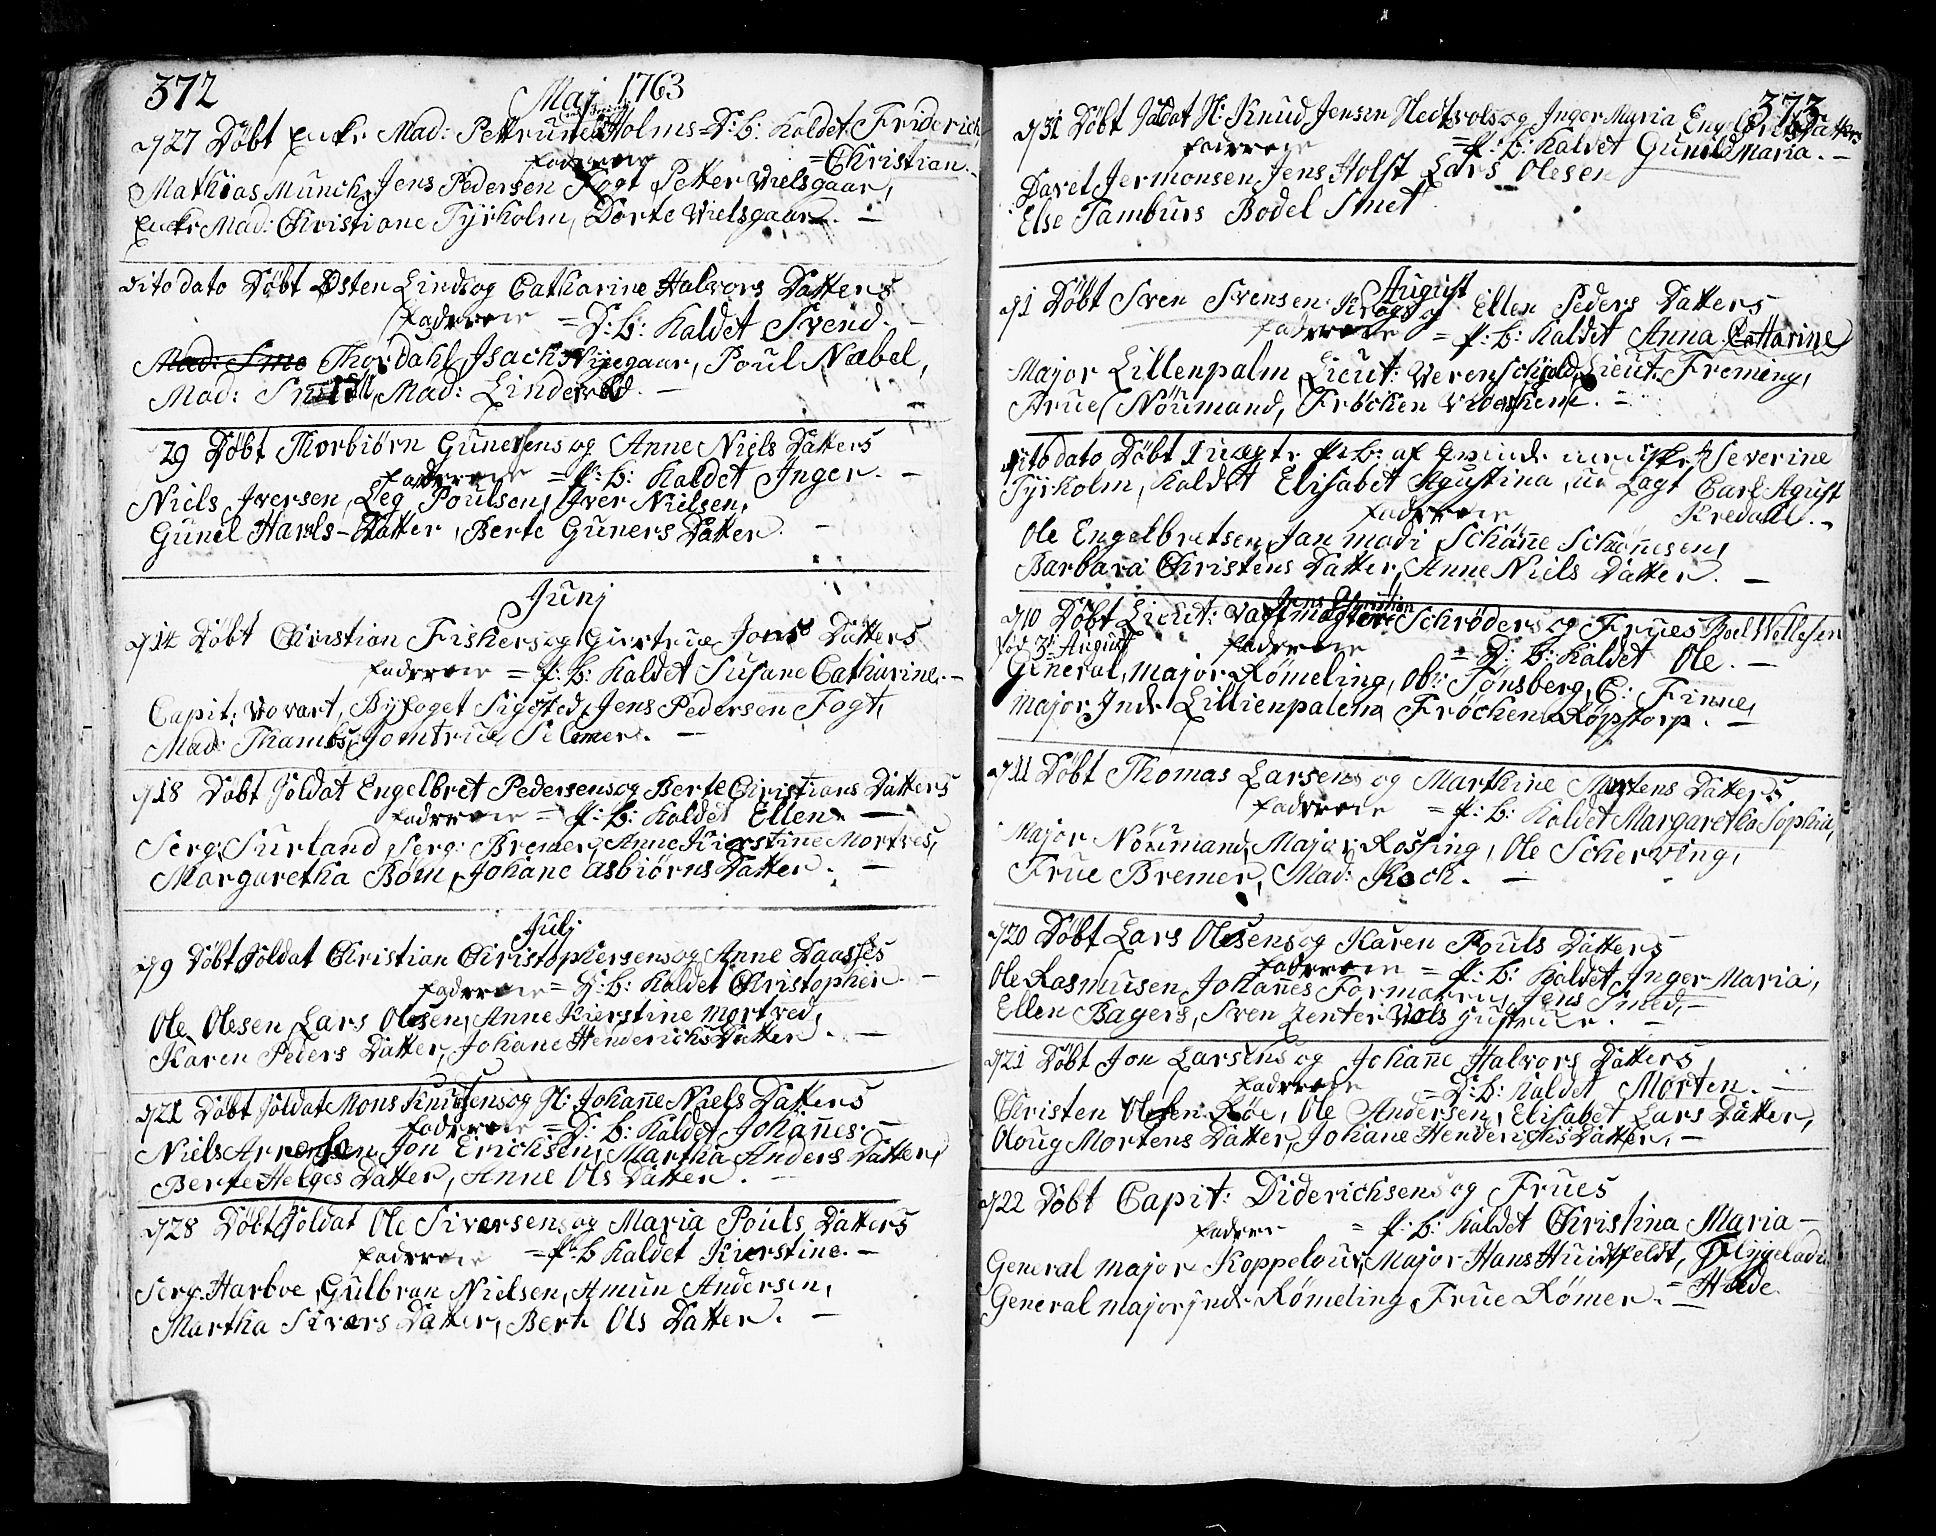 372
Maj 1763
d/27 Döbt Encke Mad: Pettrune Holms D: b: kaldet Friderich
Fadderne =Christian.-
Mathias Munch, Jens Pedersen Fogt, Petter Nielsgaar,
Encke Mad: Christiane Tyrholm, Dorte Nielsgaar. -
dito dato Döbt Østen Linds og Catharine Halvors Datters
Fadderne =D: b: kaldet Svend. -
Thordahl, Isach Nÿegaar, Poul Næbel,
Mad: Smith, Mad: Linderud. -
29 Döbt Thorbiörn Gunersens og Anne Niels Datters
Fadderne =P: b: kaldet Inger. -
Niels Iversen, Leg Poulsen, Iver Nielsen,
Gunel Harels-Datter, Berte Guners Datter. -
Junj
d/14 Döbt Christian Fishers og Giertrue Jons Datters
Fadderne =P: b: kaldet Susane Catharine. -
Capit: Wovart, Byfoget Sigsted, Jens Pedersen Fogt,
Mad: Thambs, Jomfrue Silemer. -
d/18 Döbt Soldat Engelbret Pedersens og Berte Christians Datters
Fadderne =P: b: kaldet Ellen. -
Serg: Surland, Serg: Bremer, Anne Kierstine Mortves,
Margaretha Böm, Johane Asbiörns Datter. -
Julj
d/9 Döbt Soldat Christian Christophersens og Anne Daasses
Fadderne =D: b: kaldet Christopher. -
Ole Olesen, Lars Olesen, Anne Kierstine Mortved,
Karen Peders Datter, Johane Henderichs Datter. -
d/21 Döbt Soldat Mons Knudsens og H: Johañe Niels Datters
Fadderne =D: b: kaldet Johañes. -
Niels Arnesen, Jon Erichsen, Martha Anders Datter,
Berte Helges Datter, Anne Ols Datter. -
d/28 Döbt Soldat Ole Siversens og Maria Pouls Datters
Fadderne =P: b kaldet Kierstine. -
Serg: Harboe, Gulbran Nielsen, Amun Andersen,
Martha Sivers Datter, Berte Ols Datter. -
373
d/31 Döbt Soldat N: Knud Jensen Hedvols og Inger Maria Engebrets Datters
Fadderne =P: b: kaldet Gunild Maria. -
Davet Jermonsen, Jens Holst, Lars Olesen
Else Tamburs Bodel Smet
August
d/1 Döbt Sven Svensen Krogs og Ellen Peders Datters
Fadderne =P: b: kaldet Anna Catharine
Major Lillenpalm, Lieut: Verenschiold, Lieut: Freming,
Frue Nöumand, Fröcken
dito dato Döbt Uægte P: b: af Qvinde menniske Severine
Tyrholm, kaldet Elisabet Agustina, ud Lagt Carl Agust
Fadderne Kredall. -
Ole Engelbretsen, Jan Madi, Schäñe Schöñesen,
Barbara Christens Datter, Anne Niels Datter. -
Jens Christian
d/10 Döbt Lieut: Vagtmester Schröders og Frues Boel Willesen
fød 3: August Fadderne =D: b: kaldet Ole. -
General, major Römeling, Ob: Tönsberg, C: Finne,
Major Inde Lillienpalm, Fröchen Röpstorp. -
d/11 Döbt Thomas Larsens og Marthine Mortens Datters
Fadderne =P: b: kaldet Margaretha Sophia,
Major Nöumand, Major Rossing, Ole Scherving,
Frue Bremer, Mad: Koch. -
d/20 Döbt Lars Olesens og Karen Pouls Datters
Fadderne =P: b: kaldet Inger Maria,
Ole Rasmusen, Johañes Formann, Jens Smed, -
Ellen Bagers, Sven Zenter Vals Hustrue. -
d/21 Döbt Jon Larsens og Johañe Halvors Datters
Fadderne =D: b: kaldet Morten. -
Christen Olesen Röe, Ole Andersen, Elisabet Lars Datter,
Oloug Mortens Datter, Johane Henderichs Datter. -
d/22 Döbt Capit: Diderichsens og Frues
Fadder =P: b: kaldet Christina Maria -
General major Koppelour, Major Hans Huidtfeldt, Flygelad
General majorjnde Römeling, Frue Römer. = Holde